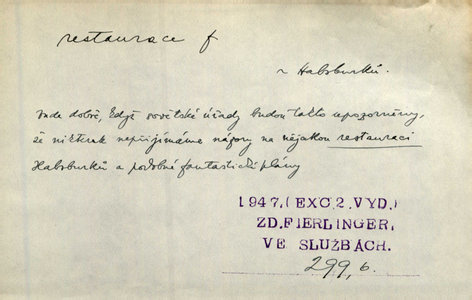 restaurace f
~ Habsburků.
bude dobře, když sovětské úřady budou takto upozorněny,
že nikterak nepřijímáme názory na nějakou restauraci
Habsburků a podobné fantastické plány
1947,(EXC.2.VYD.)
ZD.FIERLINGER,
VE SLUŽBÁCH.
299, b.